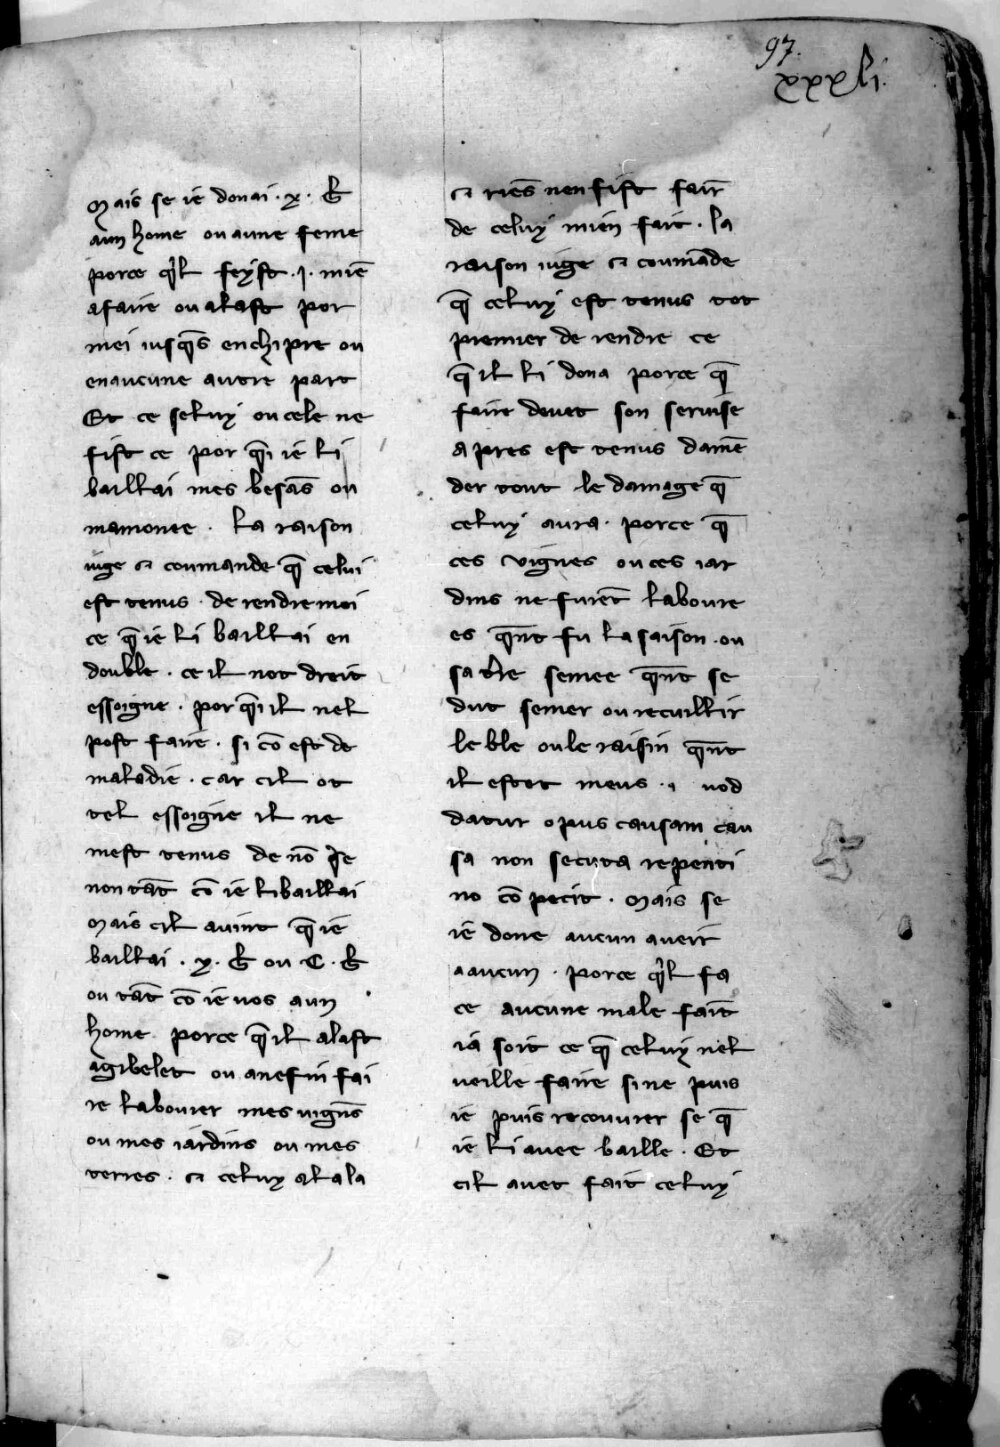 97.
xxxli.
Mais se ie donai · x · b̄
aun home ou aune feme
porce qͥl feyst · j · miē
afaire ou alast por
mei iusqs̄ enchipre ou
enaucune autre part
Et ce seluy ou cele ne
fist ce por qī ie li
baillai mes besās ou
mamonee · la raison
iuge ⁊ coumande q̄ celui
est tenus · de rendre moi
ce q̄ ie li baillai en
double · ce il not dreit
essoigne · por qī il nel
post faire · si cō est de
maladie · car cil ot
tel essoigne il ne
mest tenus de nō
non tāt cō ie li baillai
Mais cil auint q̄ ie
baillai · x · b̄ ou C · b̄
ou tāt cō ie uos aun
home porce q̄ il alast
agibelet ou anefin fai
re labourer mes uignēs
ou mes iardins ou mes
terres · ⁊ celuy alala
⁊ riēs nen fist fair̄
de celuy mien fait · la
raison iuge ⁊ coumāde
q̄ celuy est tenus tot
premier de rendre ce
q̄ il li dona porce q̄
faire deuet son seruise
apres est tenus damē
der tout le damage q̄
celuy aura · porce q̄
ces vignes ou ces iar
dins ne furēt laboure
es qn̄t fu la saison · ou
sa tr̄e semee qn̄t se
dut semer ou recuillir
le ble ou le raisin qn̄t
il estet meus · i uod
datur opus causam cau
sa non secuta repenti
no cō pecit · Mais se
ie done aucun aueir
aaucun · porce qͥl fa
ce aucune male fait̄
ia soit ce q̄ celuy nel
ueille faire si ne puis
ie puis recouurer se q̄
ie li auee baille · Et
cil auet fait celuy